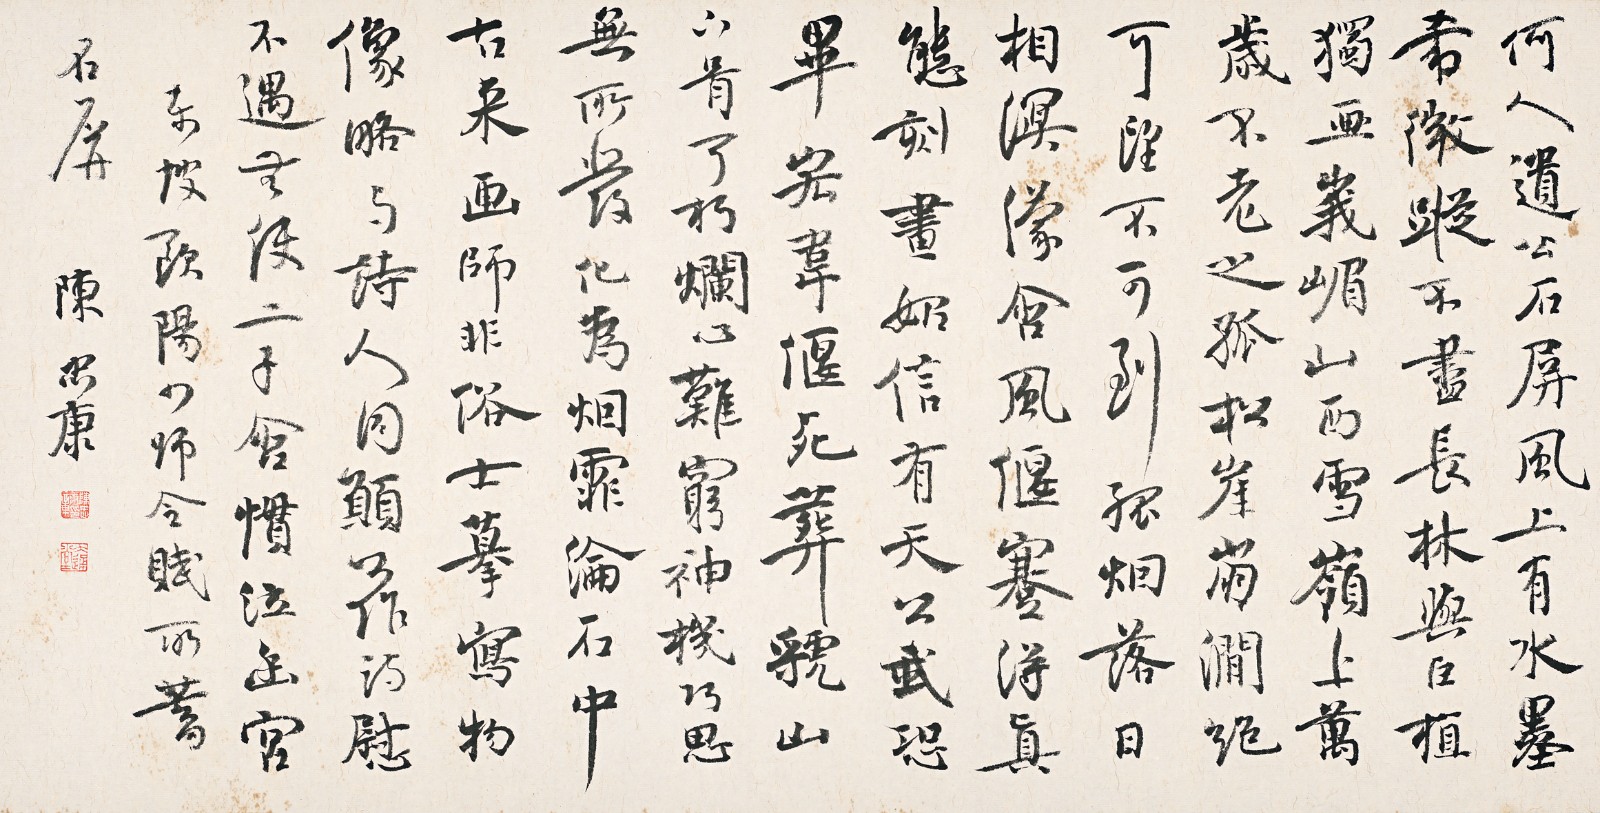 何人遺公石屏風上有水墨
希微蹤不畫長林與巨植
獨畫峩嵋山西雪嶺上萬
歲不老之孤松崖崩澗絶
可望不可到孤烟落日
相溟濛含風偃蹇得真
態刻畫始信有天公我恐
畢宏韋偃死葬虢山
下骨可朽爛心難窮神機巧思
無所發化為烟霏淪石中
古来画師非俗士摹寫物
像略与詩人同願公作詩慰
不遇無使二子含憤泣幽宮
東坡歐陽少師令賦所蓄
石屏 陳 康